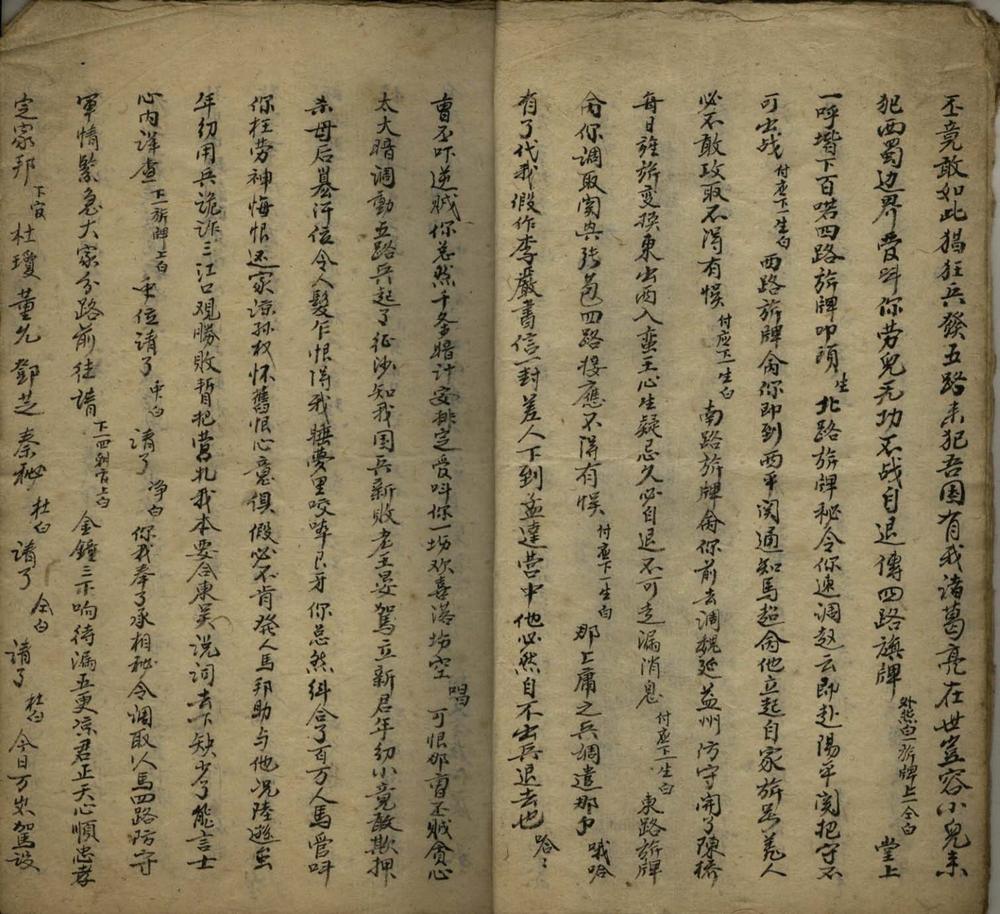 丕竟敢如此猖狂兵發五路来犯吾国有我诸葛亮在世豈容小兒来
犯西蜀边界管叫你劳兒无功不战自退傳四路旗牌 外照白一旂牌上仝白 堂上
一呼堦下百喏四路旂牌叩頭 生 北路旂牌秘令你速調赵云即赴陽平関把守不
可出战 付应下一生白 西路旂牌命你即到西平関通知馬超命他立起自家旂号羌人
必不敢攻取不淂有悮 付应下一生白 南路旂牌命你前去調魏延益州防守開了陳橋
每日旌旂变换東出西入蛮王心生疑忌久必自退不可走漏消息 付应下一生白 東路旂牌
命你調取関興張苞四路接應不淂有悮 付应下一生白 那上庸之兵調遣那个 哦哈
有了代我假作李嚴書信一封差人下到孟達营中他必然自不出兵退去也 哈哈
曹丕吓逆贼你总然千条暗计安排定管叫你一塲欢喜落塲空 唱 可恨那曹丕贼贪心
太大暗調動五路兵起了征沙知我国兵新敗老王晏駕立新君年幼小竟敢欺押
来母后篡汗位令人髮乍恨淂我睡夢里咬啐艮牙你总然纠合了百万人馬管叫
你枉劳神悔恨还家谅孙权怀舊恨心意俱假必不肯發人馬邦助与他况陸遜虽
年幼用兵詭诈三江口观勝敗暂把营扎我本要合東吴说词去下缺少了能言士
心内详查 下一旂牌上白 列位请了 中白 请了 净白 你我奉了承相秘令調取人馬四路防守
軍情緊急大家分路前往请 下四朝官上白 金鐘三下响待漏五更凉君正天心順忠孝
定家邦 下官 杜瓊董允鄧芝秦宓 杜白 请了 仝白 请了 杜白 今日万岁駕設